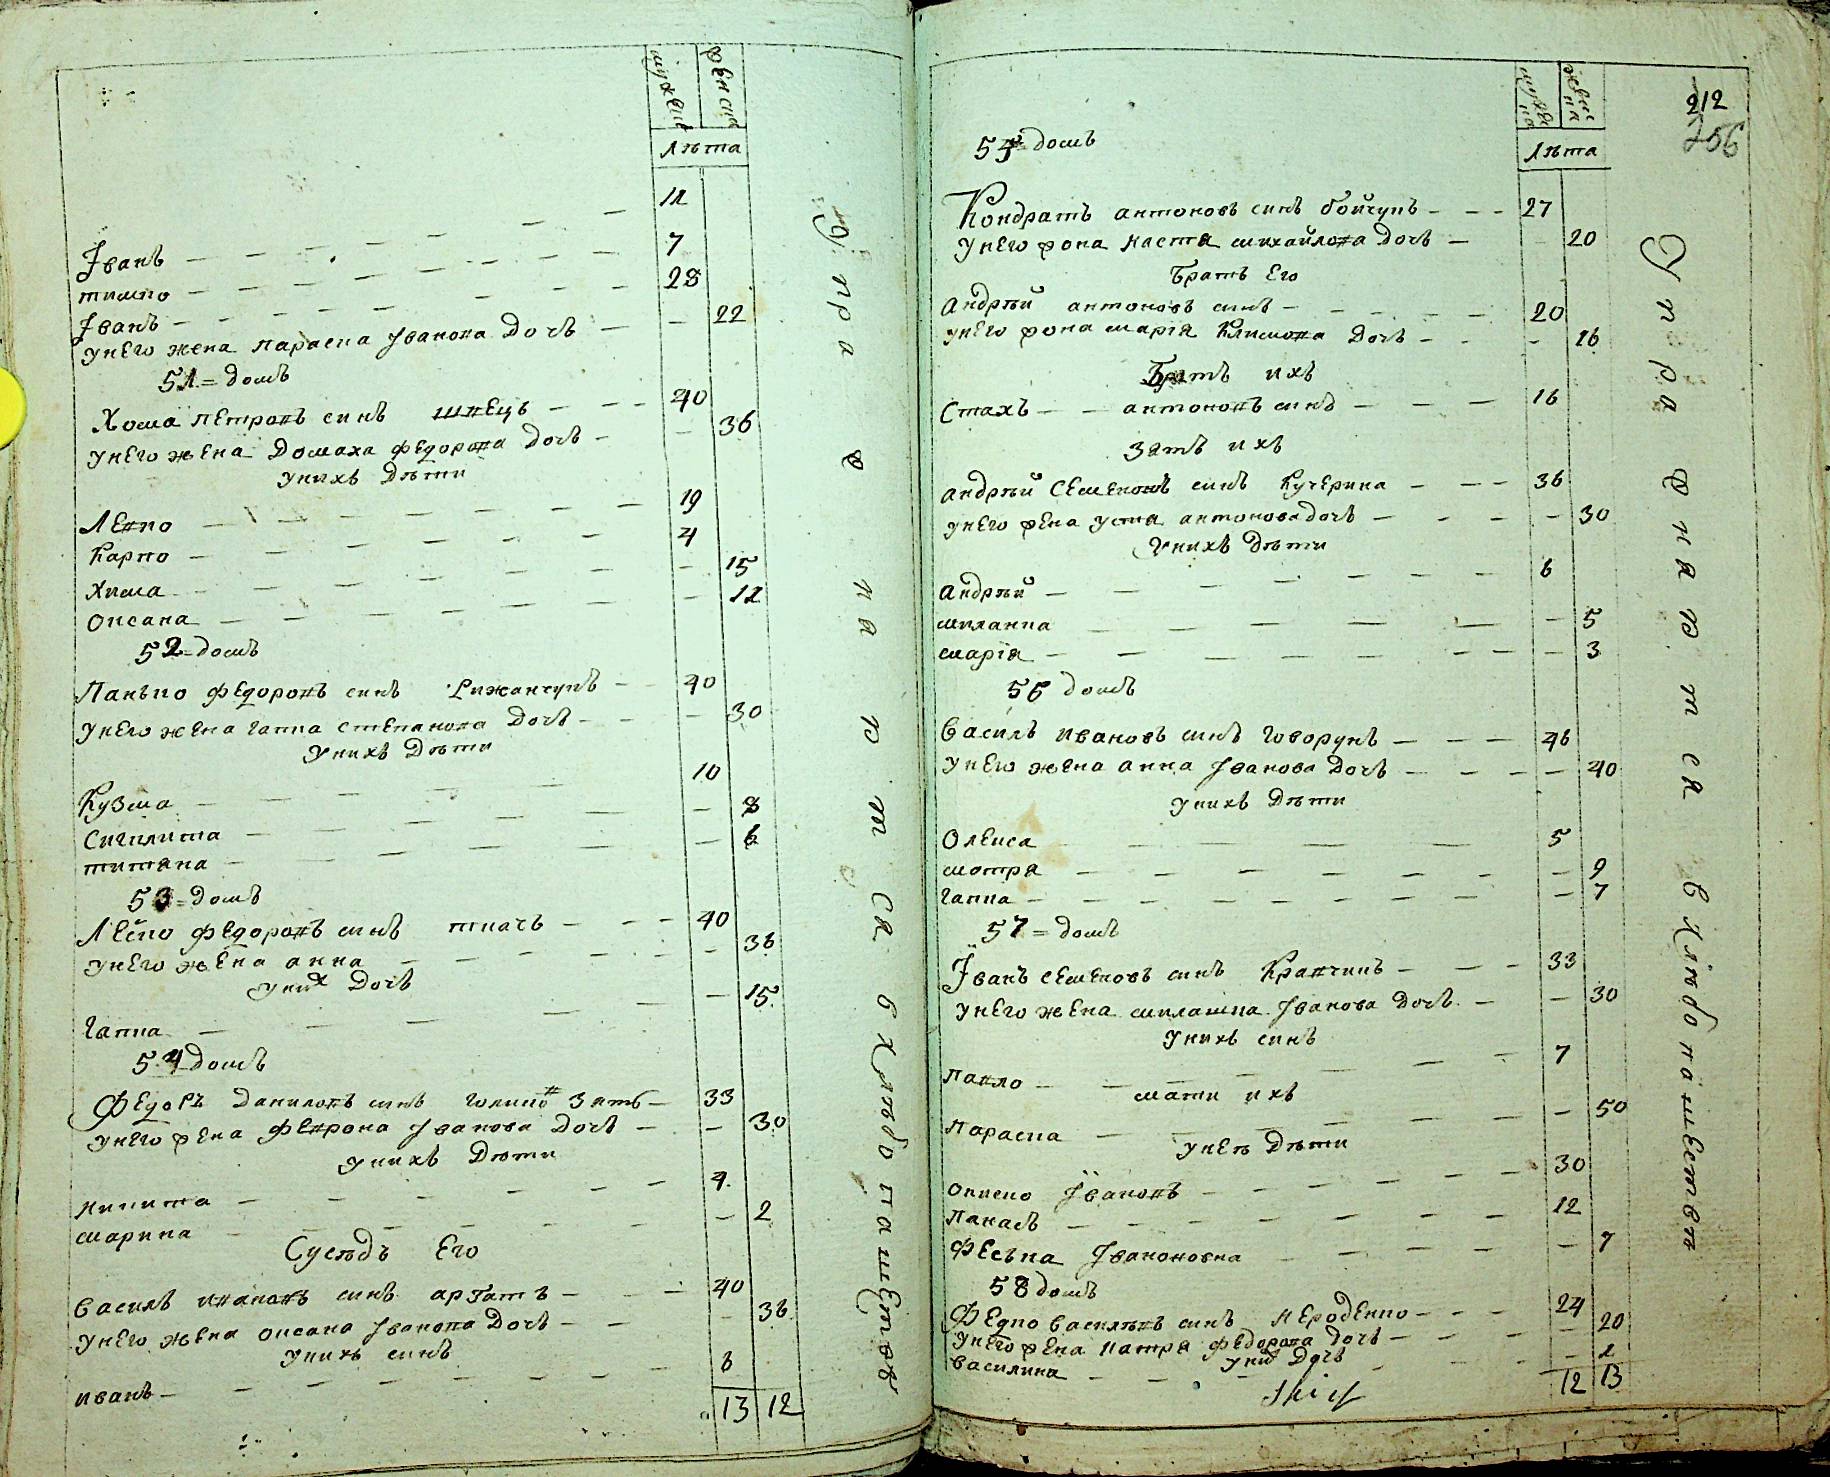 мужеска
женска
Лѣта
11
Іванъ — 7
тимко — 28
Іванъ —
унего жена параска Іванова Дочь — 22
51 = домъ
Хома петровъ синъ швецъ — 40
унего жена Домаха федорова Дочь — 36
унихъ Дѣти
Левко — 19
Карпо — 4
Хима — 15
Оксана — 11
52 = домъ
Панько федоровъ синъ — 40
унего жена гапка степанова Дочь — 30
унихъ Дѣти
Кузма — 10
Сиклита — 8
титяна — 6
53 = домъ
Леско федоровъ синъ ткачъ — 40
унего жена анна — 36
уних Дочь
Гапка — 15
54 домъ
Федоръ Даниловъ синъ зять — 33
унего жена феврона Іванова Дочь — 30
унихъ Дѣти
микита — 4
марина — 2
Сусѣдъ Его
Василь ивановъ синъ аргатъ — 40
унего жена оксана Іванова Дочь — 36
унихъ синъ
иванъ — 6
13 12
Упражняются в хлѣбопашествѣ
мужеска
женска
Лѣта
212
256
55 домъ
Кондратъ антоновъ синъ бойчукъ — 27
унего жона настя михайлова Дочь — 20
Братъ Его
андрѣй антоновъ синъ — 20
унего жона марія Климова Дочь — 16
Братъ ихъ
Стахъ — антоновъ синъ — 16
Зять ихъ
андрѣй Семеновъ синъ Кучерина — 36
унего жена устя антонова дочь — 30
унихъ Дѣти
андрѣй — 6
миланка — 5
марія — 3
56 домъ
Василь ивановъ синъ говорунъ — 46
унего жена анна Іванова Дочь — 40
унихъ Дѣти
Олекса — 5
мотря — 9
гапка — 7
57 = домъ
Іванъ семеновъ синъ Кравчикъ — 33
унего жена милашка Іванова Дочь — 30
унихъ синъ
павло — 7
мати ихъ
параска — 50
унея Дѣти
оникко Івановъ — 30
панасъ — 12
феська Івановна — 7
58 домъ
Федко василѣвъ синъ — 24
унего жена катря федорова Дочь — 20
уних Дочь
василина — 1
12 13
Упражнятся в хлѣбопашествѣ